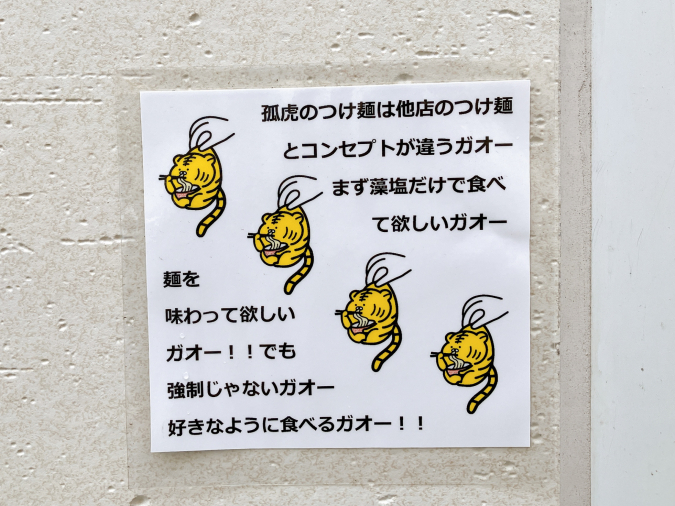 孤虎のつけ麺は他店のつけ麺
とコンセプトが違うガオー
まず藻塩だけで食べ
て欲しいガオー
麺を
味わって欲しい
ガオー！！でも
強制じゃないガオー
好きなように食べるガオー！！